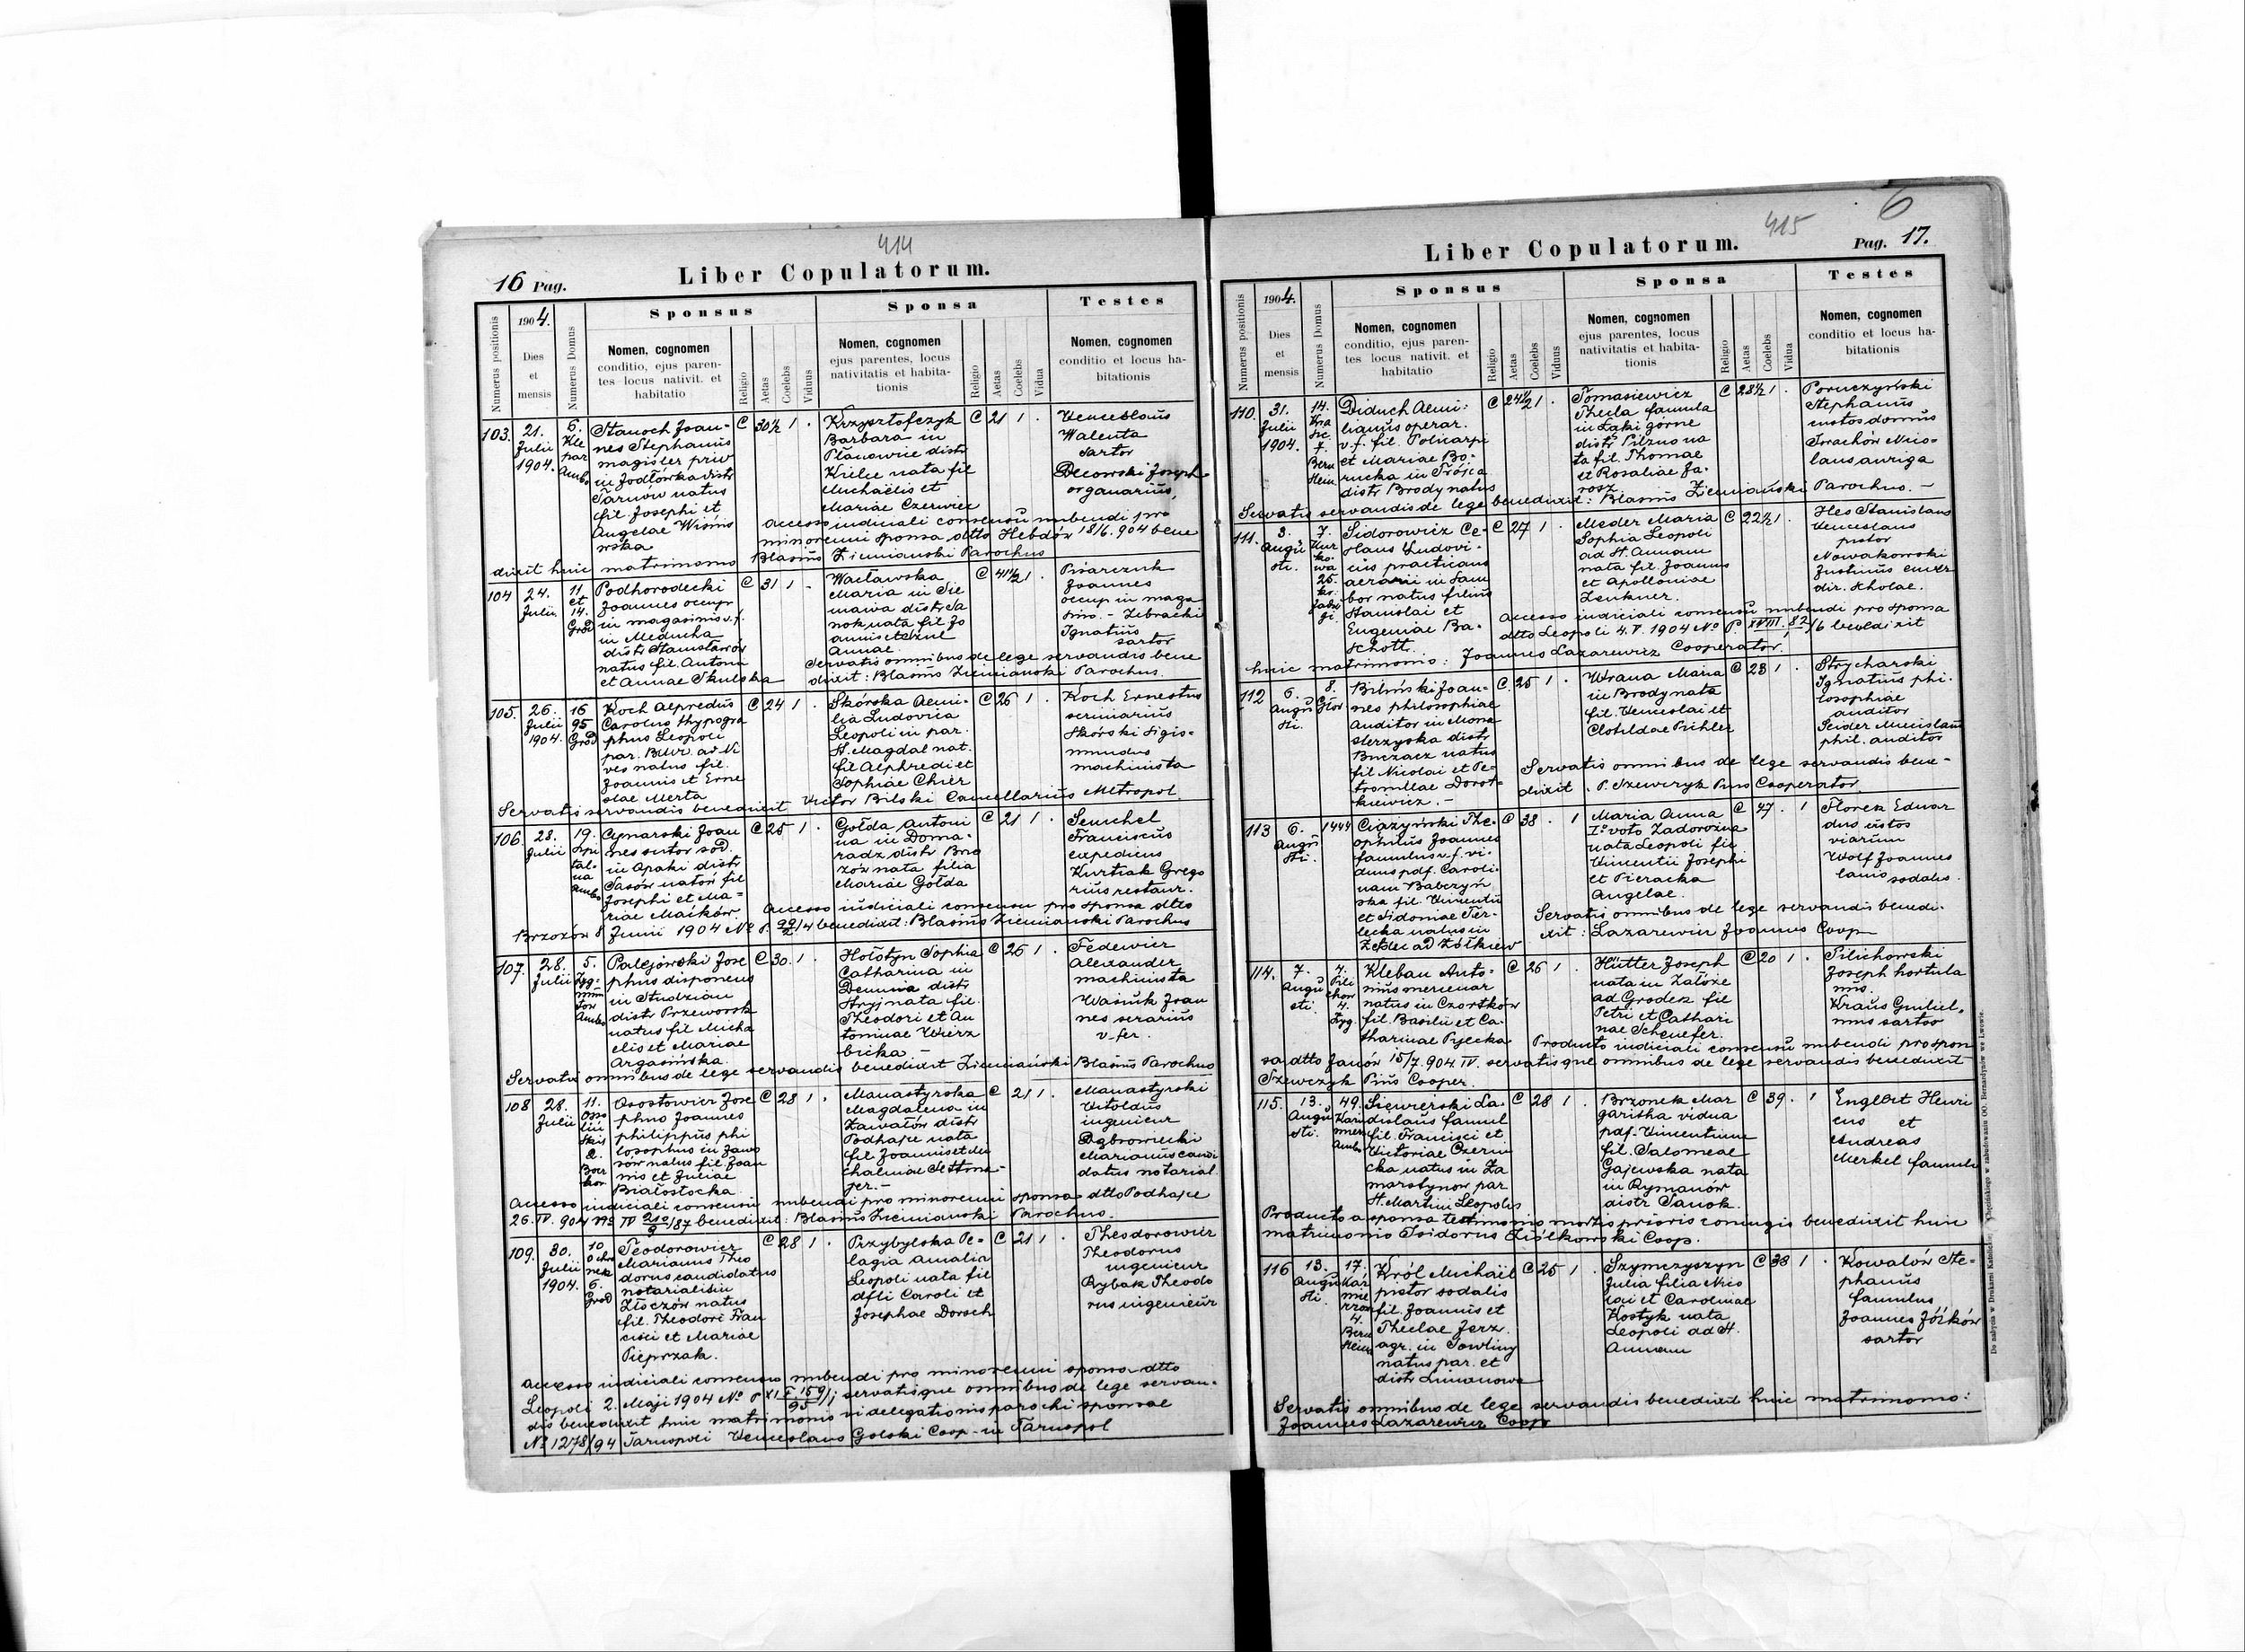 414
16 Pag.
Liber Copulatorum.
Numerus positionis
1904.
Dies
et
mensis
Numerus Domus
Sponsus
Nomen, cognomen
conditio, ejus paren-
tes locus nativit. et
habitatio
Religio
Aetas
Coelebs
Viduus
Sponsa
Nomen, cognomen
ejus parentes, locus
nativitatis et habita-
tionis
Religio
Aetas
Coelebs
Vidua
Testes
Nomen, cognomen
conditio et locus ha-
bitationis
103.
21.
Julii
1904.
6.
Kle
par
Ambo
Stanoch Joan-
nes Stephanus
magister priv
in Jodłówka distr
Tarnów natus
fil. Josephi et
Angelae Wiśnio
wska
C 30½ 1 .
Krzysztofczyk
Barbara in
Planowice distr
Kielce nata fil
Michaëlis et
Mariae Czerwiec
C 21 1 .
Venceslaus
Walenta
sartor
Decowski Joseph
organarius,
Accesso iudiciali consensu nubendi pro
minorenni sponsa dtto Hebdów 18/6. 904 bene
dixit huic matrimonio Blasius Ziemianski Parochus
104
24.
Julii
11
et
14.
Gród
Podhorodecki
Joannes occup
in magasinis v. f.
in Meducha
distr Stanisławów
natus fil. Antoni
et Annae Skulska
C 31 1 .
Wacławska
Maria in Sie
niawa distr Sa
nok nata fil Jo
annis et
Annae
C 41½ 1 .
Pisarczuk
Joannes
occup in maga
sino. - Zebracki
Ignatius
sartor
Servatis omnibus de lege servandis bene
dixit: Blasius Ziemianski Parochus.
105.
26.
Julii
1904.
16
95
Gród
Koch Alpredus
Carolus thypogra
phus Leopoli
par. B.M.V. ad Ni
ves natus fil.
Joannis et Erne
stae Merta
C 24 1 .
Skórska Aemi-
lia Ludovica
Leopoli in par.
St. Magdal nat.
fil Alphredi et
Sophiae Chier
C 26 1 .
Koch Ernestus
scriniarius
Skórski Sigis-
mundus
machinista
Servatis servandis benedixit Victor Bilski Cancellarius Metropol.
106.
28.
Julii
19.
Szpi
tal-
na
Ambo
Cynarski Joan
nes sutor sod.
in Opaki distr
Sasów natus fil
Josephi et Ma-
riae Maików
C 25 1 .
Gołda Antoni
na in Doma-
radz distr Brzo
zów nata filia
Mariae Gołda
C 21 1 .
Semchel
Franciscus
expediens
Kurtiak Grego
rius restaur.
Accesso iudiciali consensu pro sponsa dtto
Brzozów 8 Junii 1904 No P. 99/2/4 benedixit: Blasius Ziemianski Parochus
107.
28.
Julii
5.
Zyg-
mun
tow
Ambo
Palejowski Jose
phus disponens
in Studzian
distr Przeworsk
natus fil Micha
elis et Mariae
Argasińska.
C 30. 1 .
Hołotyn Sophia
Catharina in
Demnia distr
Stryj nata fil.
Theodori et An
toninae Wierz
bicka -
C 26 1 .
Fedewicz
Alexander
machinista
Wasiuk Joan
nes serarius
v. fer.
Servatis omnibus de lege servandis benedixit Ziemiański Blasius Parochus
108
28.
Julii
11.
Osso
liń
skis
2.
Bour
lar.
Ossostowicz Jose
phus Joannes
philippus phi
losophus in Zawa
rów natus fil. Joan
nis et Juliae
Białostocka
C 28 1 .
Manastyrska
Magdalena in
Zawałów distr
Podhajce nata
fil Joannis et Mi
chalinae Settma-
jer. -
C 21 1
Manastyrski
Vitoldus
ingenieur
Dąbrowiecki
Marianus candi
datus notarial.
Accesso iudiciali consensu nubendi pro minorenni sponsa dtto Podhajce
26. IV. 904 No IV 210/3/87 benedixit: Blasius Ziemianski Parochus.
109.
30.
Julii
1904.
10
Ochro
nek
6.
Gród
Teodorowicz
Marianus Theo
dorus candidatus
notarialis in
Złoczów natus
fil. Theodori Fran
cisci et Mariae
Pieprzak.
C 28 1 .
Przybylska Pe-
lagia Amalia
Leopoli nata fil
dfti Caroli et
Josephae Dorsch
C 21 1 .
Theodorowicz
Theodorus
ingenieur
Rybak Theodo
rus ingenieur
Accesso iudiciali consensu nubendi pro minorenni sponsa dtto
Leopoli 2. Maji 1904 No P XI X. 159/95/1; servatisque omnibus de lege servan-
dis benedixit huic matrimonio vi delegationis parochi sponsae
No 1278/94 Tarnopoli Venceslaus Golski Coop. in Tarnopol
6
415
Liber Copulatorum.
Pag. 17.
Numerus positionis
1904.
Dies
et
mensis
Numerus Domus
Sponsus
Nomen, cognomen
conditio, ejus paren-
tes locus nativit. et
habitatio
Religio
Aetas
Coelebs
Viduus
Sponsa
Nomen, cognomen
ejus parentes, locus
nativitatis et habita-
tionis
Religio
Aetas
Coelebs
Vidua
Testes
Nomen, cognomen
conditio et locus ha-
bitationis
110.
31.
Julii
1904.
14.
Kra
sic
7.
Bern
stein.
Diduch Aemi-
lianus operar.
v. f. fil. Policarpi
et Mariae Bo-
rucka in Trójca
distr Brody natus
C 24½ 1 .
Tomasiewicz
Thecla famula
in Łąki górne
distr Pilzno na
ta fil. Thomae
et Rosaliae Ja-
rosz
C 28½ 1 .
Poruczyński
Stephanus
custos domus
Torachów Nico-
laus auriga
Servatis servandis de lege benedixit: Blasius Ziemiański Parochus. -
111.
3.
Augu
sti.
7.
Kur
ko-
wa
25.
Jabło
Sidorowicz Ce-
slaus Ludovi-
cus practicans
aerarii in Sam
bor natus filius
Stanislai et
Eugeniae Ba-
schott.
C 27 1 .
Meder Maria
Sophia Leopoli
ad St. Annam
nata fil. Joannis
et Apolloniae
Zenkner.
C 22½ 1
Hes Stanislaus
Venceslaus
pistor
Nowakowski
Justinus emer
dir. scholae.
Accesso iudiciali consensu nubendi pro sponsa
dtto Leopoli 4. V. 1904 No P. XVIII. 82/1/6 benedixit
huic matrimonio: Joannes Lazarewicz Cooperator.
112
6.
Augu
sti.
8.
Głor
Biliński Joan-
nes philosophiae
auditor in Mona
sterzyska distr
Buczacz natus
fil Nicolai et Pe-
tronillae Dorot-
kiewicz. -
C 25 1 .
Wrana Maria
in Brody nata
fil. Venceslai et
Clotildae Pichler
C 23 1 .
Strycharski
Ignatius phi-
losophiae
auditor
Seider Miecislaus
phil. auditor
Servatis omnibus de lege servandis bene-
dixit . P. Szewczyk Pius Cooperator.
113
6.
Augu
sti.
1444
Ciązyński The-
ophilus Joannes
famulus v. f. vi-
duus pdf. Caroli-
nam Babczyń
ska fil. Vincentii
et Sidoniae Ter-
lecka natus in
Żełdec ad Żółkiew
C 38 . 1
Maria Anna
I° voto Zadorożna
nata Leopoli fil
Vincentii Josephi
et Pieracka
Angelae.
C 47. 1
Florek Eduar
dus custos
viarum
Wolf Joannes
lanio sodalis.
Servatis omnibus de lege servandis benedi-
xit : Lazarewicz Joannes Coop
114.
7.
Augu
sti.
4.
Pili
chow
4.
Zyg.
Kleban Anto-
nius mercenar
natus in Czortków
fil. Basilii et Ca-
tharinae Pyecka
C 26 1 .
Hütter Joseph
nata in Założe
ad Grodek fil
Petri et Cathari
nae Scheuefer.
C 20 1 .
Pilichowski
Joseph hortula
nus.
Kraus Guiliel-
mus sartor
Producto iudiciali consensu nubendi pro spon
sa dtto Janów 15/7. 904 IV. servatisque omnibus de lege servandis benedixit
Szewczyk Pius Cooper.
115.
13.
Augu
sti.
49.
Kazi
mier
Ambo
Siewierski La-
dislaus famul
fil. Francisci et
Victoriae Czerni
cka natus in Za
marstynow par
St. Martini Leopolis
C 28 1 .
Brzonek Mar
garitha vidua
pdf. Vincentium
fil. Salomeae
Gajewska nata
in Rymanów
distr Sanok.
C 39. 1
Englert Henri
cus et
Andreas
Merkel famuli
Producto a sponsa testimonio mortis prioris coniugis benedixit huic
matrimonio Isidorus Ziółkowski Coop.
116
13.
Augu
sti.
17.
Kaź
mie
rzow
4.
Bern
stein
Król Michaël
pistor sodalis
fil. Joannis et
Theclae Jerz.
agr. in Sowliny
natus par. et
distr Limanowa
C 25 1 .
Szymczyszyn
Julia filia Nico
lai et Carolinae
Kostyk nata
Leopoli ad St.
Annam
C 38 1 .
Kowalów Ste-
phanus
famulus
Joannes Jóźków
sartor
Servatis omnibus de lege servandis benedixit huic matrimonio:
Joannes Lazarewicz Coop
Do nabycia w Drukarni Katolickiej Chęcińskiego w zabudowaniu OO. Bernardynów we Lwowie.